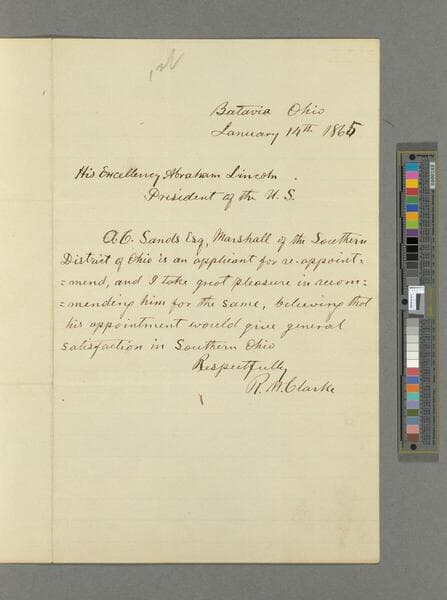 Batavia Ohio
January 14th 1865
His Excellency Abraham Lincoln.
President of the U. S.
A. C. Sands Esq, Marshall of the Southern
District of Ohio is an applicant for re-appoint=
=mend, and I take great pleasure in recom=
=mending him for the same, believing that
his appointment would give general
satisfaction in Southern Ohio
Respectfully
R. W. Clarke